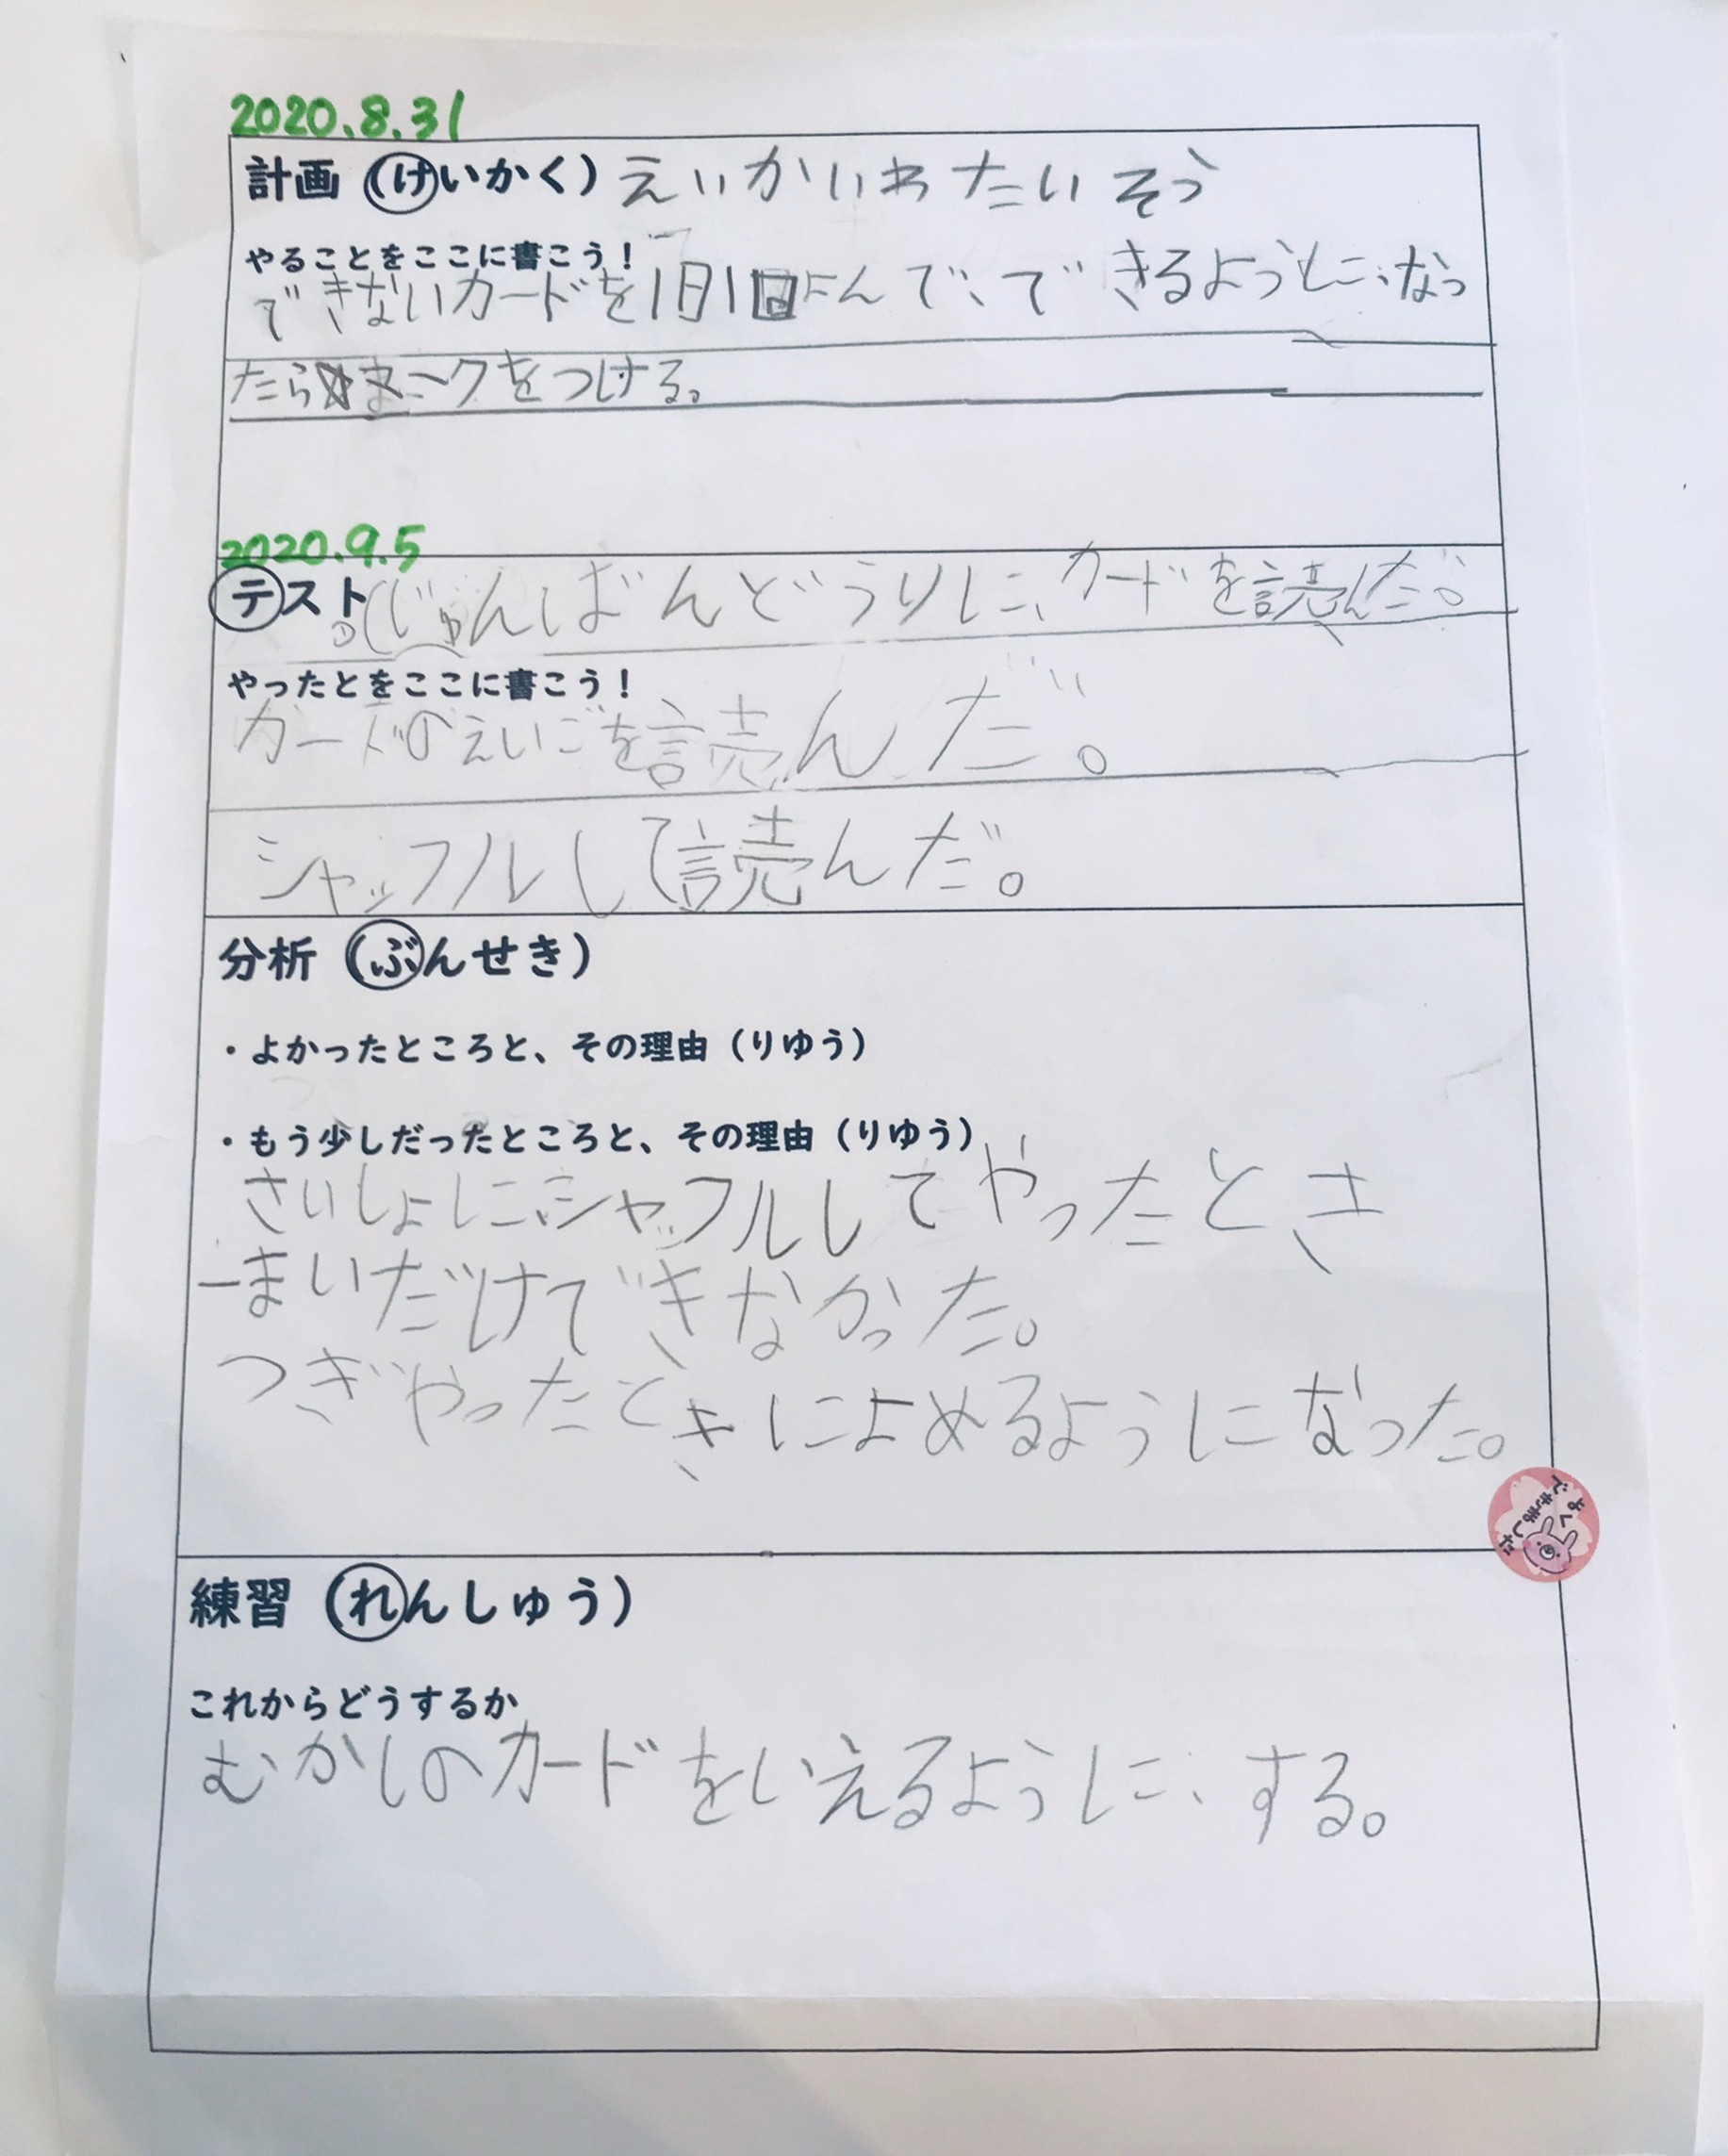 2020.8.31
計画(けいかく)えいかいわたいそう
やることをここに書こう!
できないカードを1日1回よんで、できるように、なっ
たら☆マークをつける。
2020.9.5
テスト。じゅんばんどうりに、カードを読んだ。
やったとをここに書こう!
カードのえいごを読んだ。
シャッフルして読んだ。
分析(ぶんせき)
・よかったところと、その理由(りゆう)
・もう少しだったところと、その理由(りゆう)
さいしょに、シャッフルしてやったとき
一まいだけできなかった。
つぎやったときによめるようになった。
よくできましただ
練習(れんしゅう)
これからどうするか
むかしのカードをいえるように、する。